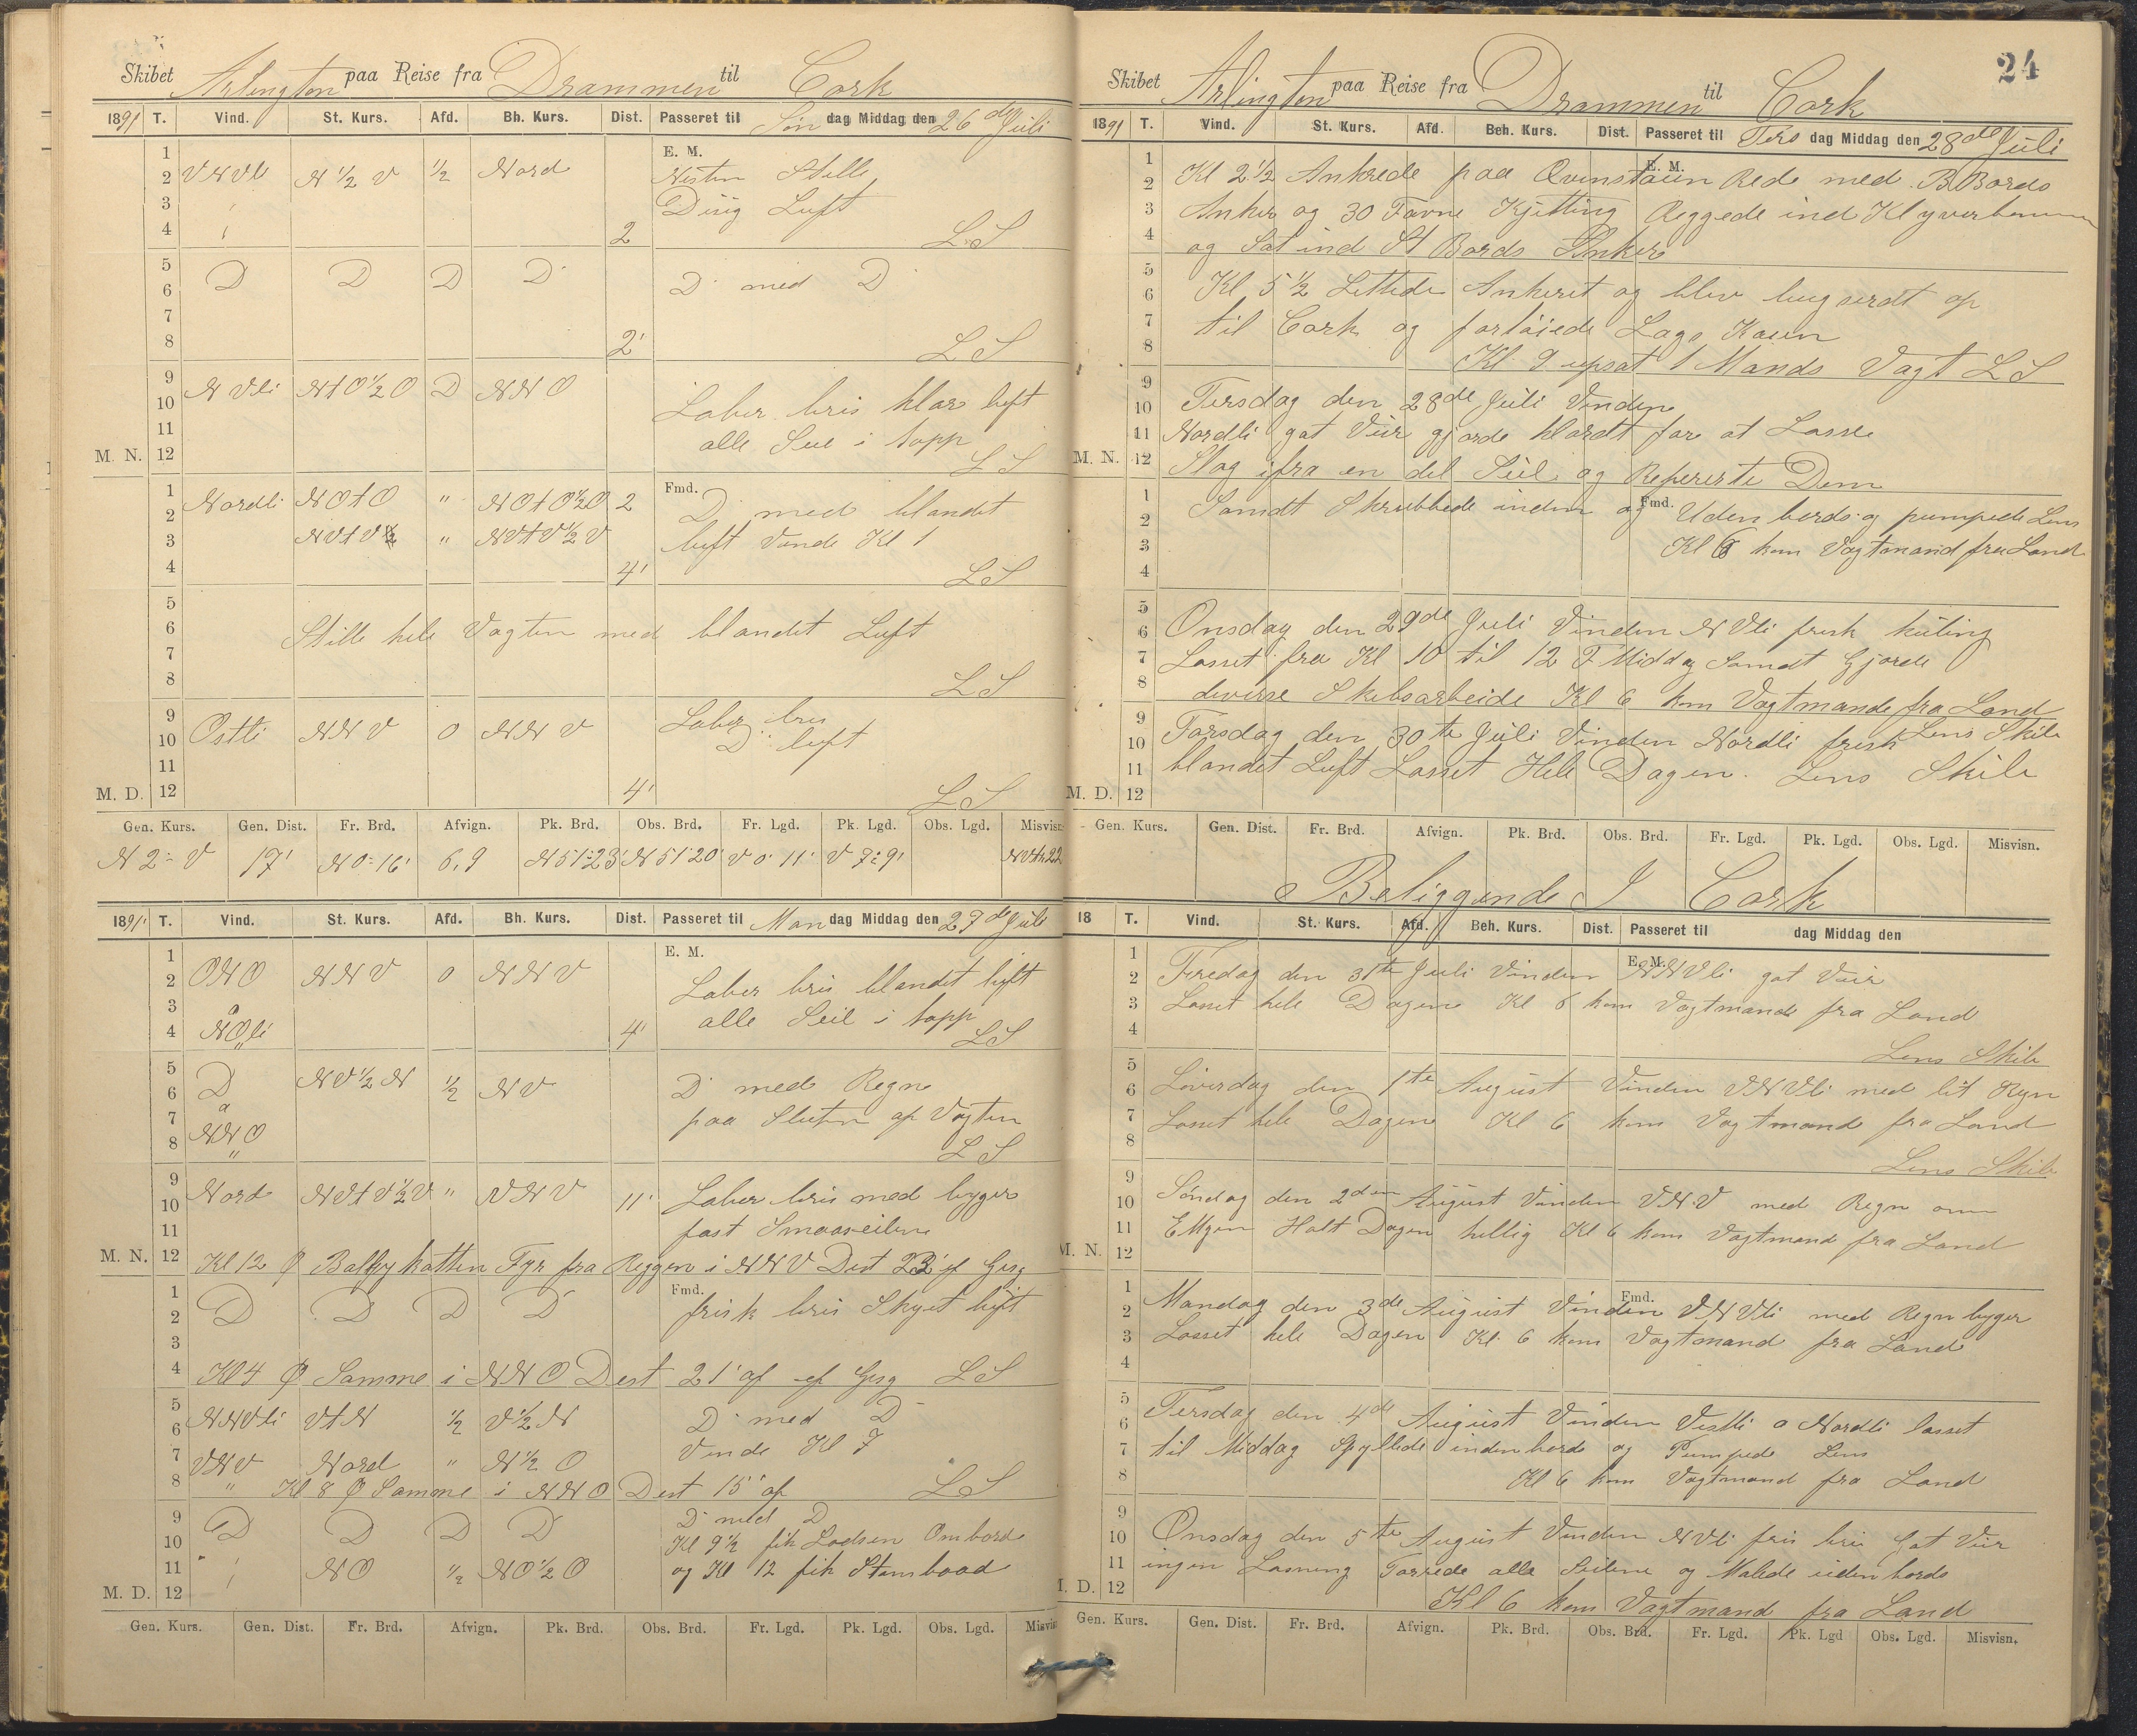 Skibet Arlington paa Reise fra Drammen til Cork
1891 T. Vind. St. Kurs. Afd. Bh. Kurs. Dist. Passeret til Søn dag Middag den 26de Juli
1 E. M.
2 VNVli N 1/2 V 1/2 Nord Nesten Stille
3 Disig Luft
4 2 LS
5
6 D D D D D med D
7
8 2' LS
9 NVli NtO 1/2 O D NNO
10 Laber bris klar luft
11 alle Seil i topp
M. N. 12 LS
1 Nordli NOtO " NOtO 1/2 O 2 Fmd.
2 D med blandet
3 NVtV 1/2 " NVtV 1/2 V luft Vende Kl 1
4 4' LS
5
6 Stille hele Vagten med blandet Luft
7
8 LS
9 Laber bris
10 Ostli NNV 0 NNV D luft
11
M. D. 12 4' LS
Gen. Kurs. Gen. Dist. Fr. Brd. Afvign. Pk. Brd. Obs. Brd. Fr. Lgd. Pk. Lgd. Obs. Lgd. Misvisn.
N 2 V 17' N 0 16' 6,9 N 51 23' N 51 20' V 0 11' V 7 9'
1891 T. Vind. St. Kurs. Afd. Bh. Kurs. Dist. Passeret til Man dag Middag den 27de Juli
1 E. M.
2 ONO NNV 0 NNV Laber bris blandet luft
3 a alle Seil i topp
4 NOli 4' LS
5
6 D NV 1/2 N 1/2 NV D med Regn
7 a paa Sluten af Vagten
8 NNO LS
9
10 Nord NVtV 1/2 V " VNV 11' Laber bris med byger
11 fast Smaaseilene
M. N. 12 Kl 12 Fyr fra Reggen i NNV Dist 23'
1 Fmd.
2 D D D D frisk bris Skyet luft
3
4 Kl 4 Samme i NNO Dist 21' af LS
5
6 NNVli VtN 1/2 V 1/2 N D med D
7 VNV Nord " N 1/2 O Vende Kl 7
8 " Kl 8 Samme i NNO Dist 15' af LS
9 D med D
10 D D D D Kl 9 1/2 fik Lodsen Ombord
11 NO 1/2 NO 1/2 O og Kl 12 fik Stembaad
M. D. 12
Gen. Kurs. Gen. Dist. Fr. Brd. Afvign. Pk. Brd. Obs. Brd. Fr. Lgd. Pk. Lgd. Obs. Lgd. Misvisn.
24
Skibet Arlington paa Reise fra Drammen til Cork
1891 T. Vind. St. Kurs. Afd. Beh. Kurs. Dist. Passeret til Tirs dag Middag den 28de Juli
1 E. M.
2 Kl 2 1/2 Ankrede paa Qvinstaun Red med B Bords
3 Anker og 30 Favne Kjetting Reggede ind Klyverbommen
4 og Sat ind St Bords Anker
5
6 Kl 5 1/2 Lettede Ankeret og blev bugserdt op
7 til Cork og fortøiede Kaien
8 Kl 9 upsat 1 Mands Vagt LS
9 Tirsdag den 28de Juli Vinden
10
11 Nordli got Veir gjorde klardt for at Losse
M. N. 12 Slog ifra en del Seil og Repererte Dem
1 Fmd.
2 Samdt Skrubbede inden og Uden bords og pumpede Lens
3 Kl 6 kom Vagtmand fra Land
4
5
6 Onsdag den 29de Juli Vinden NVli frisk kuling
7 Losset fra Kl 10 til 12 F Middag Samdt Gjorde
8 diverse Skibsarbeide Kl 6 kom Vagtmand fra Land
9 Lens Skib
10 Torsdag den 30te Juli Vinden Nordli frisk
11 blandet Luft Losset Hele Dagen. Lens Skib
M. D. 12
Gen. Kurs. Gen. Dist. Fr. Brd. Afvign. Pk. Brd. Obs. Brd. Fr. Lgd. Pk. Lgd. Obs. Lgd. Misvisn.
Beliggende I Cork
18 T. Vind. St. Kurs. Afd. Beh. Kurs. Dist. Passeret til dag Middag den
1 E. M.
2 Fredag den 31te Juli Vinden NNVli got Veir
3 Losset hele Dagen Kl 6 kom Vagtmand fra Land
4 Lens Skib
5
6 Løverdag den 1te August Vinden VNVli med lit Regn
7 Losset hele Dagen Kl 6 kom Vagtmand fra Land
8 Lens Skib
9
10 Søndag den 2den August Vinden VNV med Regn om
11 Ettgen Holt Dagen hellig Kl 6 kom Vagtmand fra Land
M. N. 12
1 Fmd.
2 Mandag den 3de August Vinden VNVli med Regn byger
3 Losset hele Dagen Kl 6 kom Vagtmand fra Land
4
5
6 Tirsdag den 4de August Vinden Vestli a Nordli losset
7 til Middag Spyllede inden bords og Pumpede Lens
8 Kl 6 kom Vagtmand fra Land
9
10 Onsdag den 5te August Vinden NVli fris bris Got Veir
11 ingen Losning Tørrede alle Seilene og Malede uden bords
M. D. 12 Kl 6 kom Vagtmand fra Land
Gen. Kurs. Gen. Dist. Fr. Brd. Afvign. Pk. Brd. Obs. Brd. Fr. Lgd. Pk. Lgd Obs. Lgd. Misvisn.